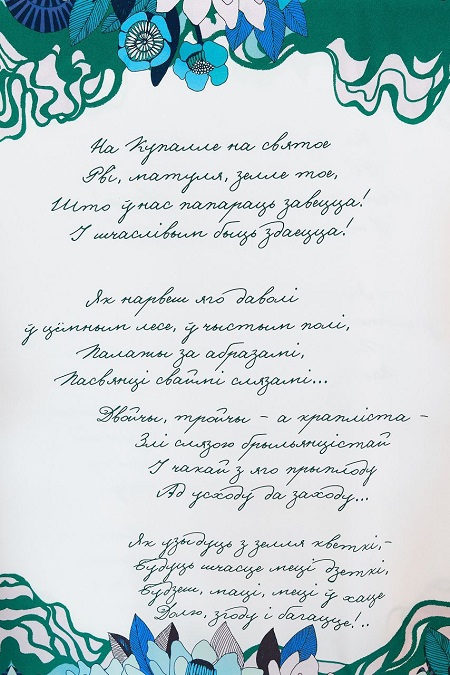 На Купалле на святое
Рві, матуля, зелле тое,
Што ў нас папараць завецца!
І шчаслівым быць здаецца!
Як нарвеш яго даволі
ў цёмным лесе, ў чыстым полі,
Палажы за абразамі,
Пасвянці сваймі слязамі...
Двойчы, тройчы - а крапліста -
Злі слязою брыльянцістай
І чакай з яго прыплоду
Ад усходу да заходу...
Як узыдуць з зелля кветкі,-
Будуць шчасце меці дзеткі,
Будзеш, маці, меці ў хаце
Долю, згоду і багацце!..